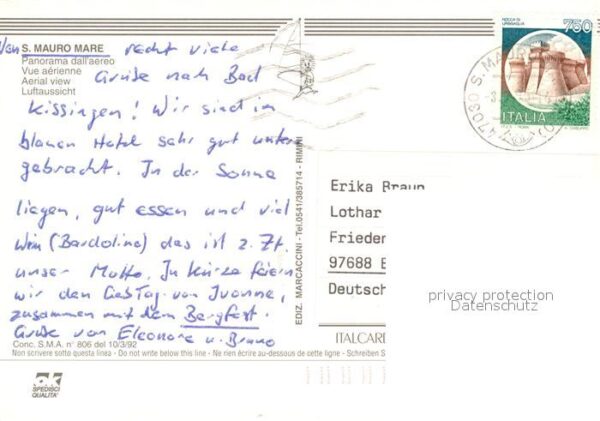 Von S. MAURO MARE recht viele
Panorama dall'aereo
Vue aérienne
Aerial view
Luftaussicht
Grüße nach Bad
Kissingen! Wir sind im
blauen Hotel sehr gut unter
gebracht. In der Sonne
liegen, gut essen und viel
Wein (Bardolino) das ist z. Zt.
unser Motto. In Kürze feiern
wir den Gebtag von Yvonne,
zusammen mit dem Bergfest.
Grüße von Eleonore u. Bruno
Conc. S.M.A. n° 806 del 10/3/92
Non scrivere sotto questa linea - Do not write below this line - Ne rien écrire au-dessous de cette ligne - Schreiben S
SPEDISCI
QUALITA'
EDIZ. MARCACCINI - Tel.0541/385714 - RIMINI
ITALCARD
ROCCA DI
URBISAGLIA
750
ITALIA
47030 S. MAURO
Erika Braun
Lothar
Frieden
97688 B
Deutsch
privacy protection
Datenschutz